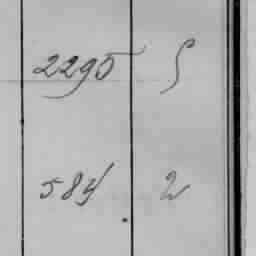 2295 S
584 2